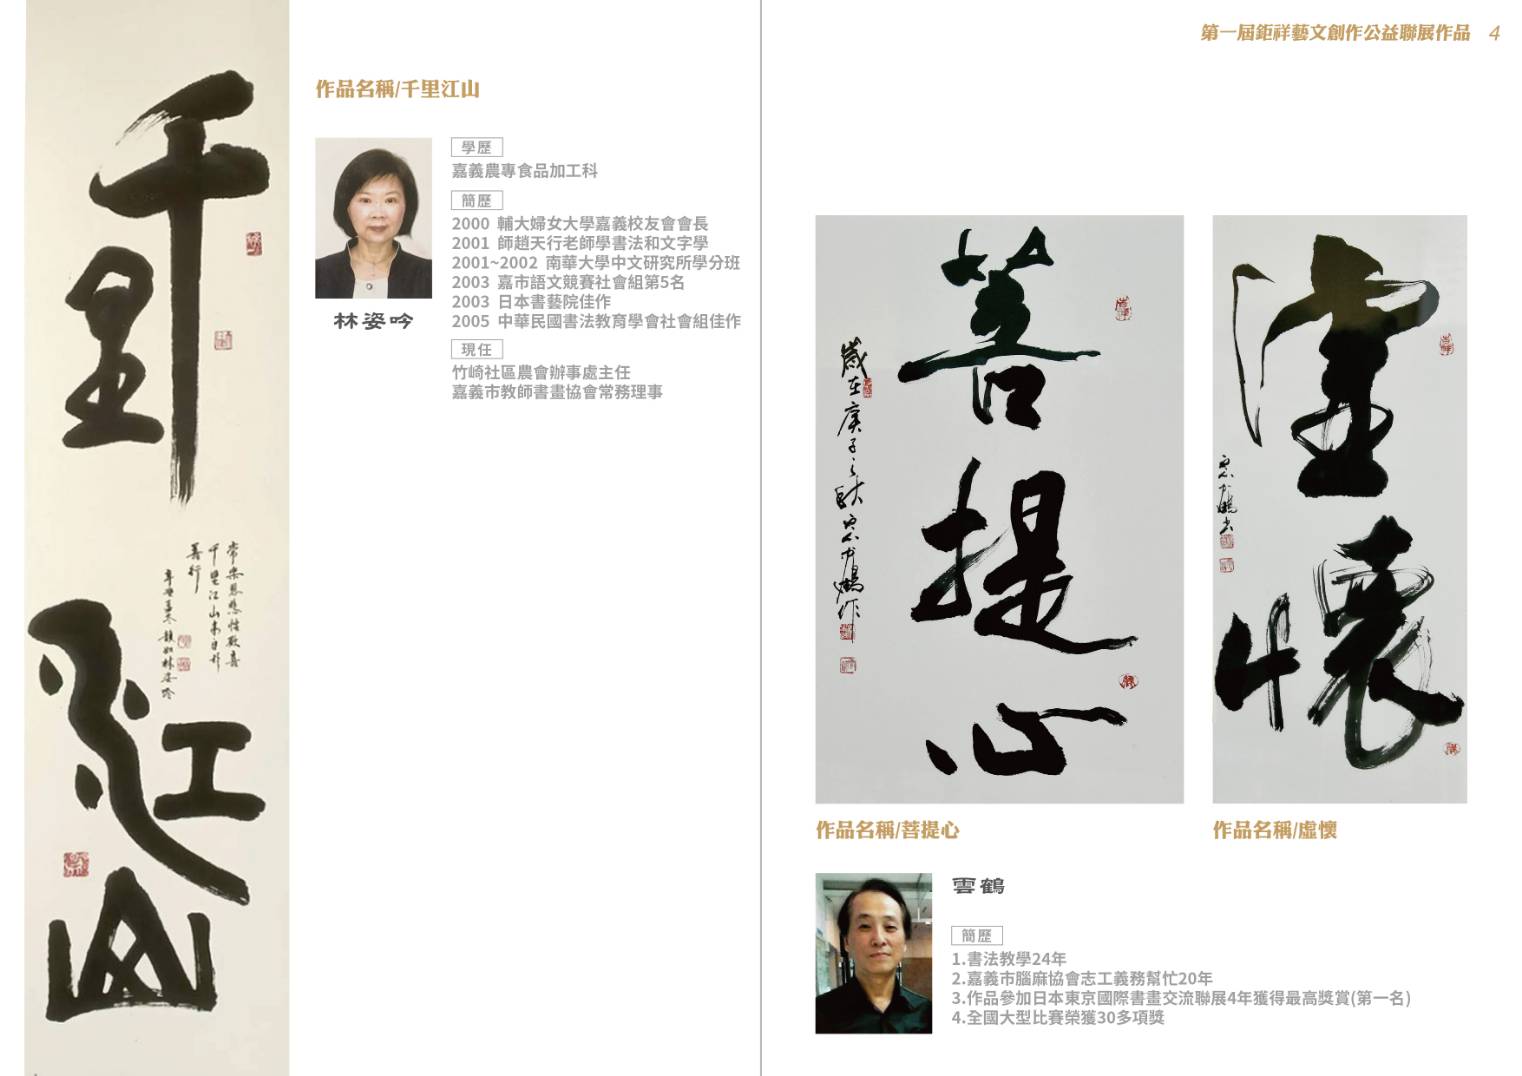 第一屆鉅祥藝文創作公益聯展作品 4
千里江山
常樂慈悲性歡喜
千里江山來自行
善行
作品名稱/千里江山
林姿吟
學歷
嘉義農專食品加工科
簡歷
2000 輔大婦女大學嘉義校友會會長
2001 師趙天行老師學書法和文字學
2001~2002 南華大學中文研究所學分班
2003 嘉市語文競賽社會組第5名
2003 日本書藝院佳作
2005 中華民國書法教育學會社會組佳作
現任
竹崎社區農會辦事處主任
嘉義市教師書畫協會常務理事
菩提心
歲在庚子之秋雲鶴作
作品名稱/菩提心
虛懷
作品名稱/虛懷
雲鶴
簡歷
1.書法教學24年
2.嘉義市腦麻協會志工義務幫忙20年
3.作品參加日本東京國際書畫交流聯展4年獲得最高獎賞(第一名)
4.全國大型比賽榮獲30多項獎